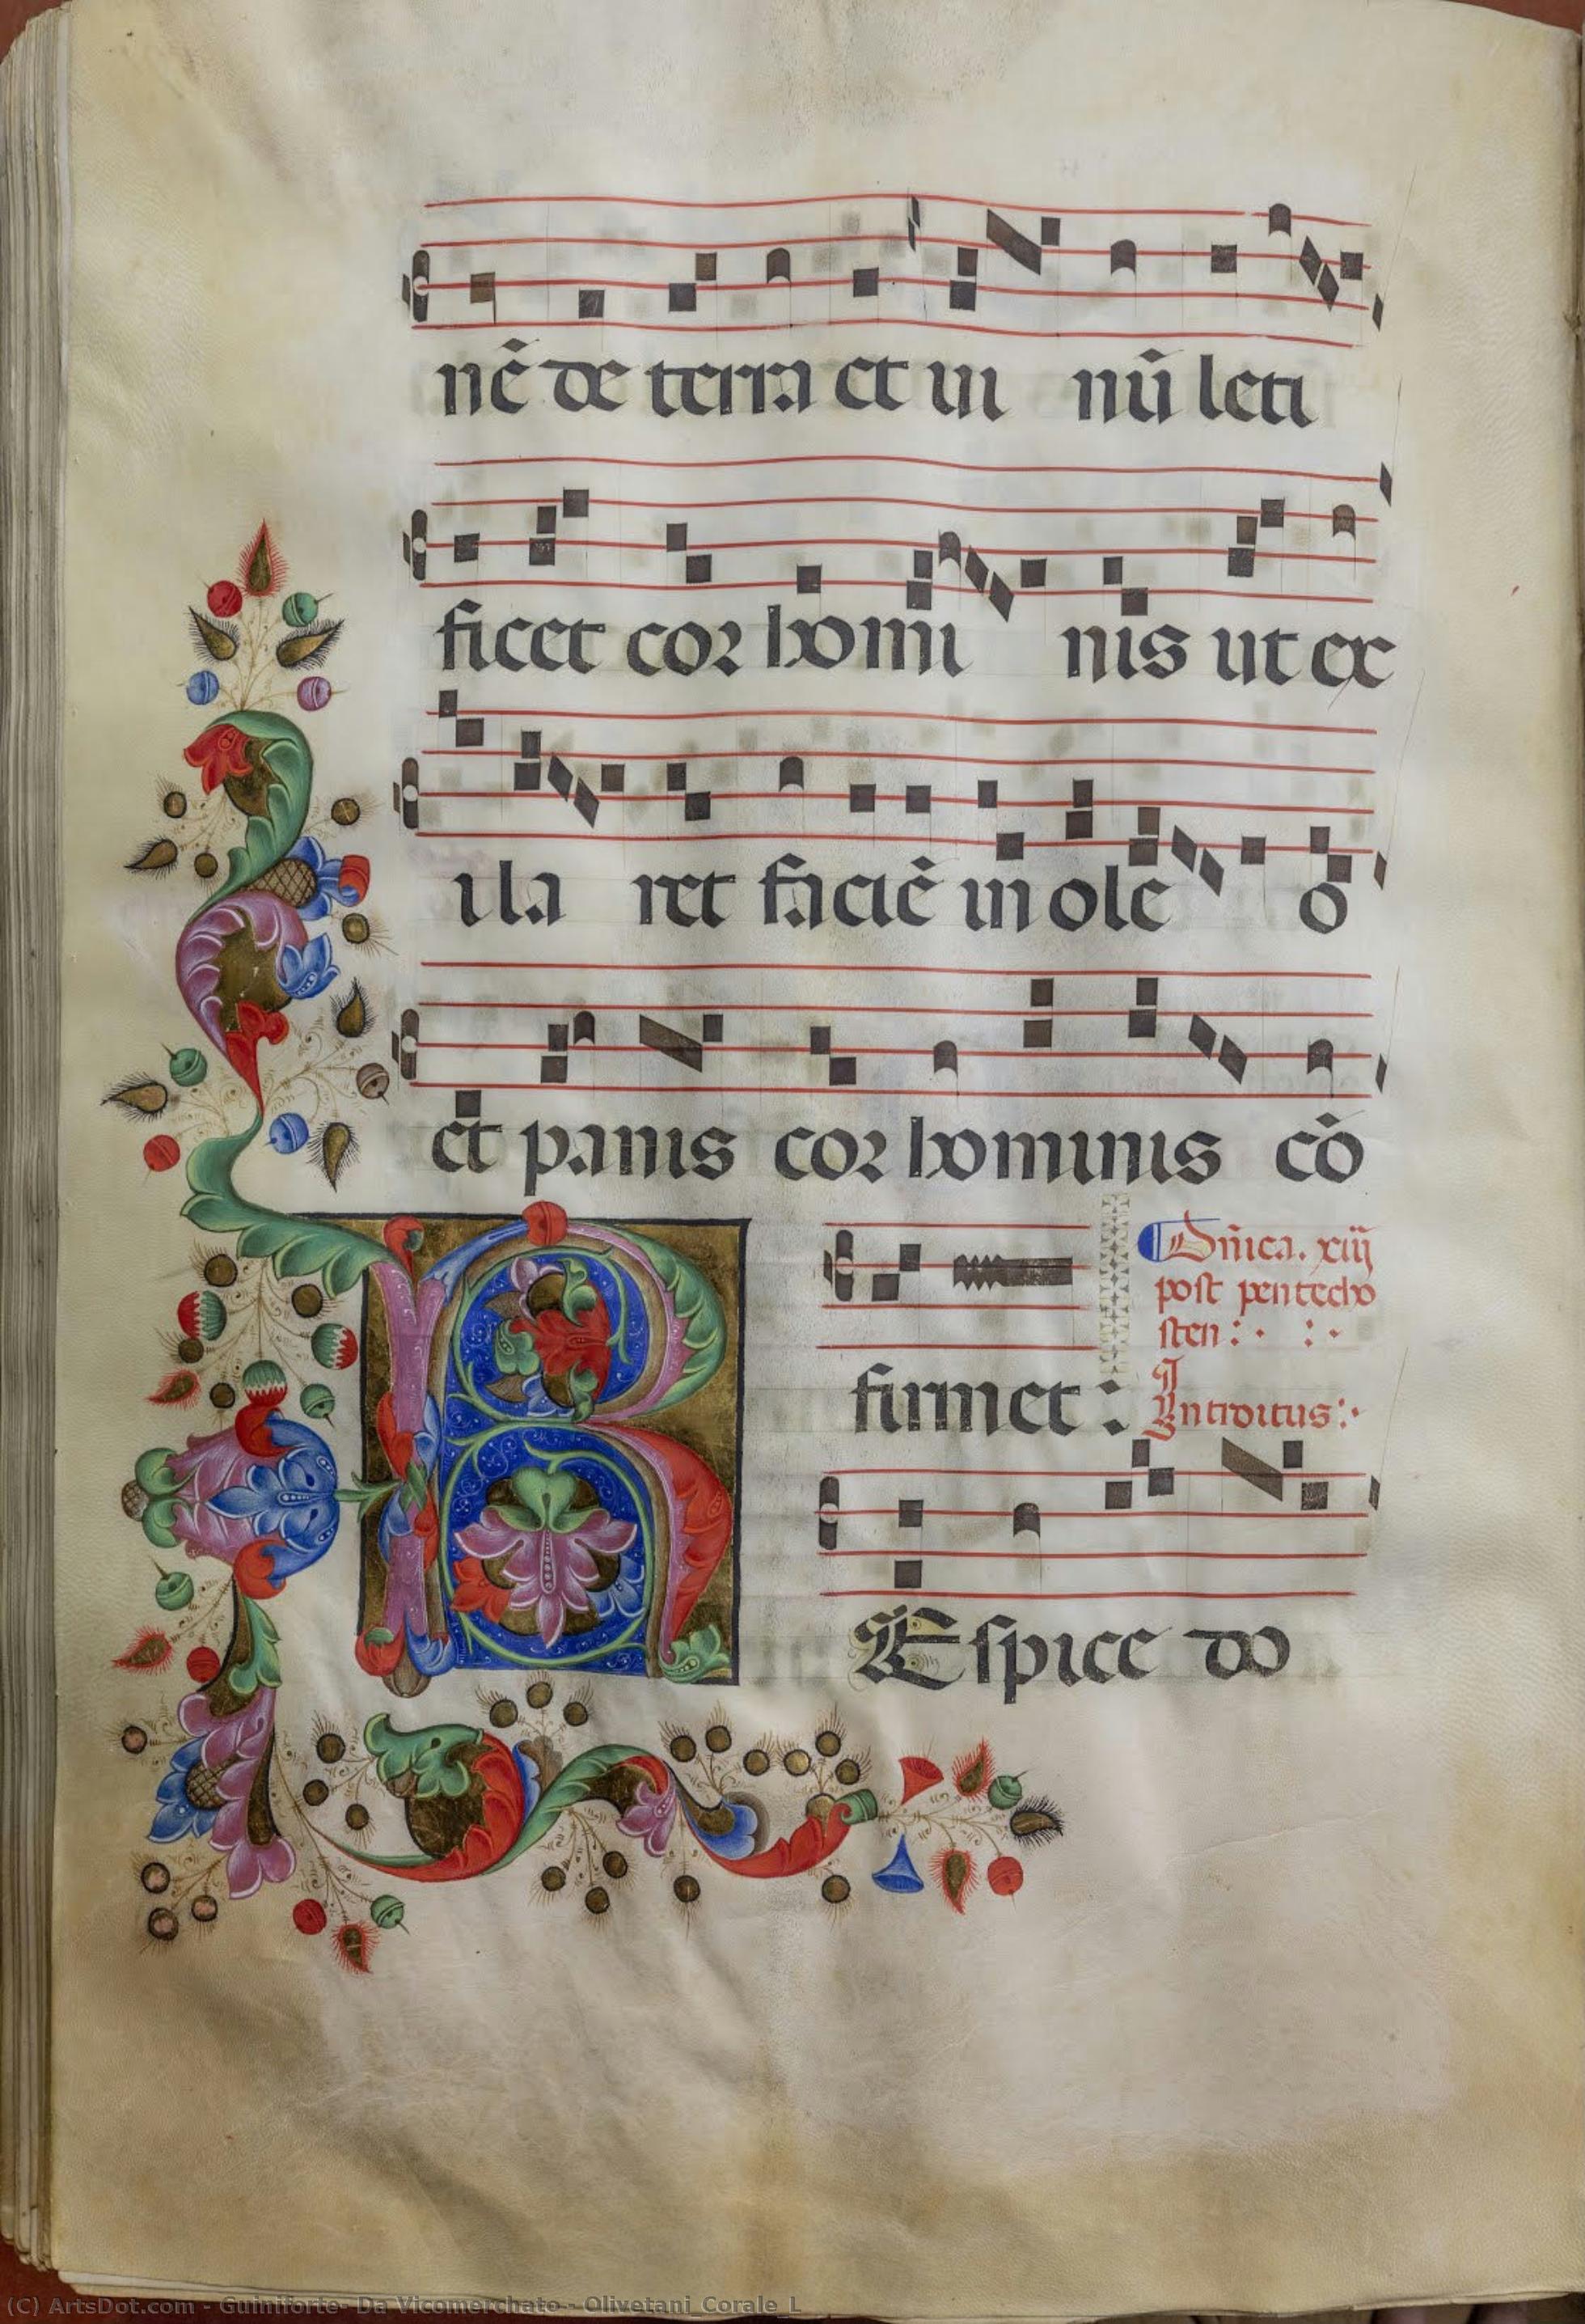 nē de terra et ui nū leti
ficet cor homi nis ut ex
ila ret faciē in ole o
et panis cor hominis cō
firmet :
Dn̄ica. xiiij
post pentecho
sten : · : ·
Introitus : ·
R
Espice do
(C) ArtsDot.com - Guiniforte- Da Vicomerchato - Olivetani_Corale_L